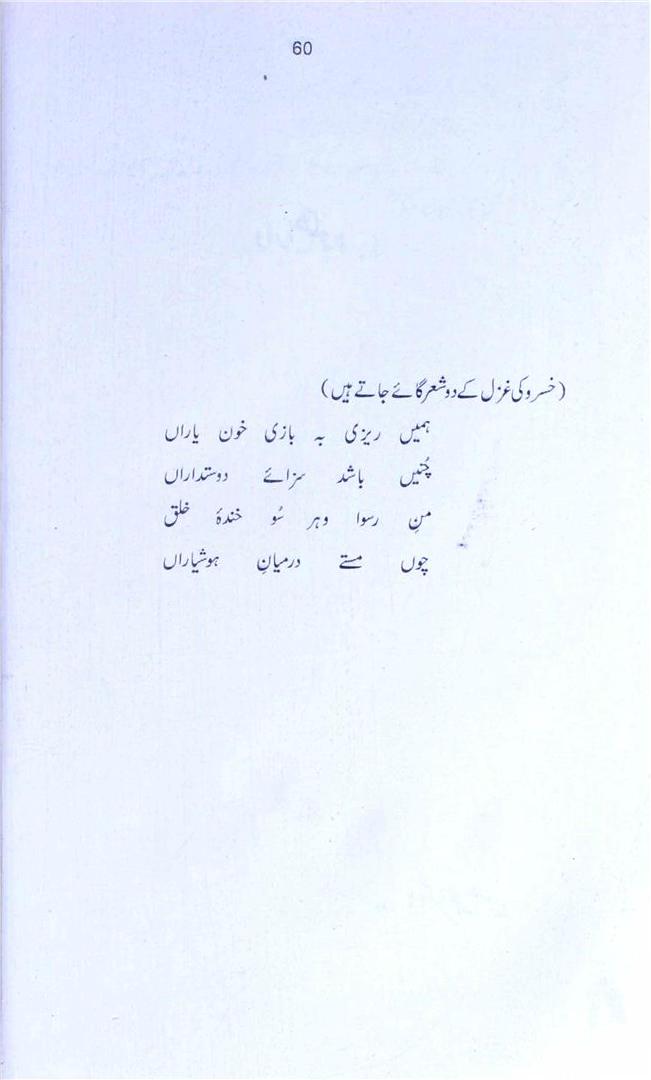 60
(خسرو کی غزل کے دو شعر گائے جاتے ہیں)
ہمیں ریزی بہ بازی خون یاراں
چُنیں باشد سزائے دوستداراں
منِ رسوا وہر سُو خندۂ خلق
چوں مستے درمیانِ ہوشیاراں